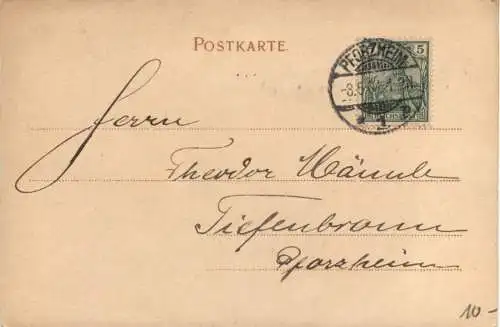 POSTKARTE.
5
PFORZHEIM
Herrn
Theodor Hämmle
Tiefenbronn
Pforzheim
10-